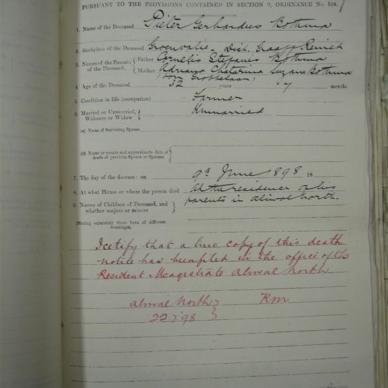 PURSUANT TO THE PROVISIONS CONTAINED IN SECTION 9, ORDINANCE No. 104
1. Name of the Deceased Pieter Gerhardus Bothma
2. Birthplace of the Deceased Dist. Graaff Reinett
3. Names of the Parents of the Deceased. Father Cornelis Stefanus Bothma
Mother Adriana Catarina Susana Bothma
4. Age of the Deceased 32 years months
5. Condition in life (occupation) Farmer
6. Married or Unmarried, Widower or Widow Unmarried
(a) Name of Surviving Spouse
(b) Name or names and approximate date of death of previous Spouse or Spouses
7. The day of the decease: on 9th June 1898
8. At what House or where the person died At the residence of his
parents in Aliwal North.
9. Names of Children of Deceased, and whether majors or minors
(Stating separately those born of different marriages.
I certify that a true copy of this death
notice has been filed in the office of the
Resident Magistrate Aliwal North
Aliwal North RM